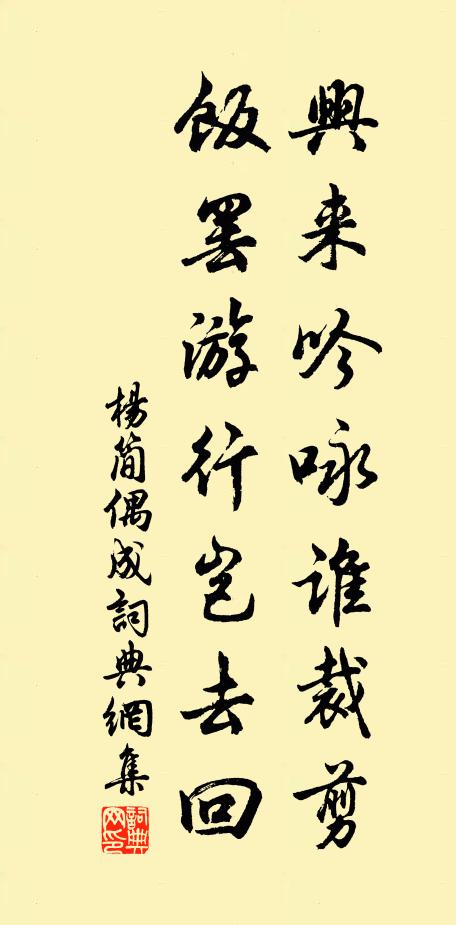 興来吟咏誰裁剪
飯罢游行岂去回
楊简偶成詞典網集
詞典网印